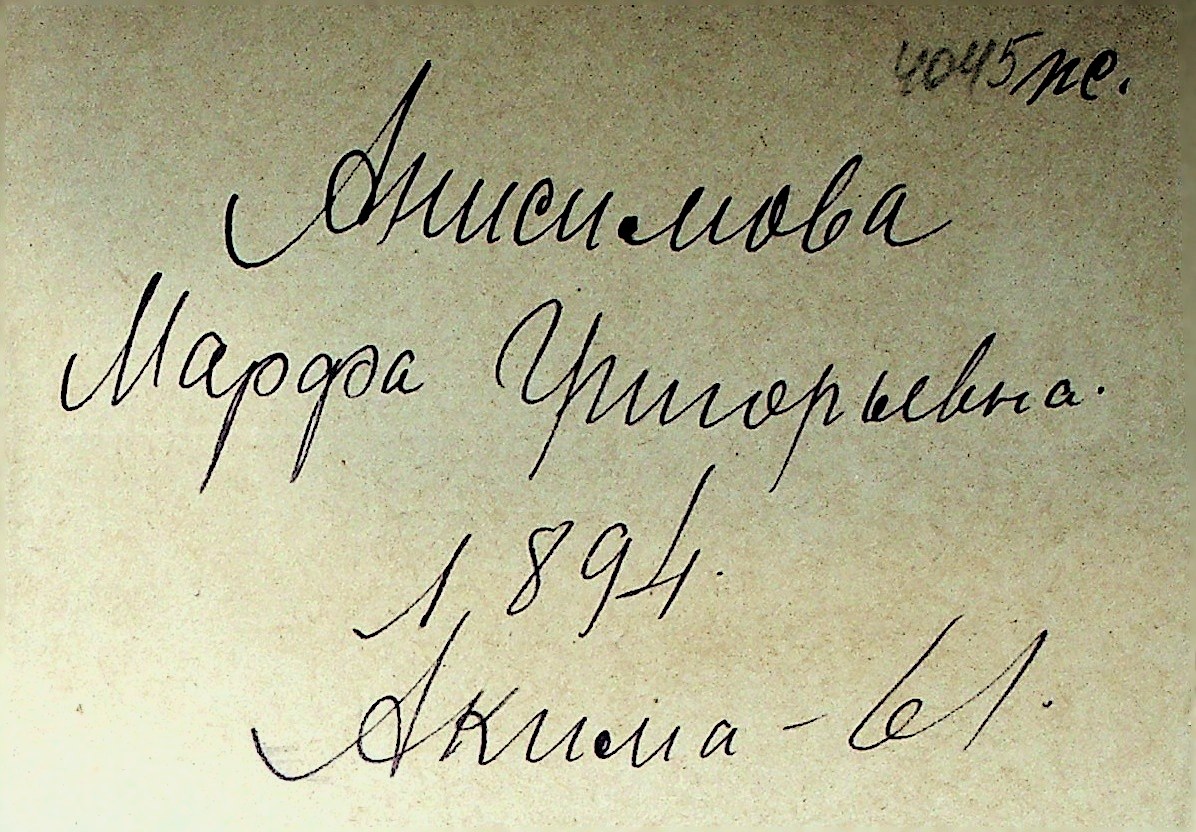 4045 пе.
Анисимова
Марфа Григорьевна.
1894.
Акима - 61.